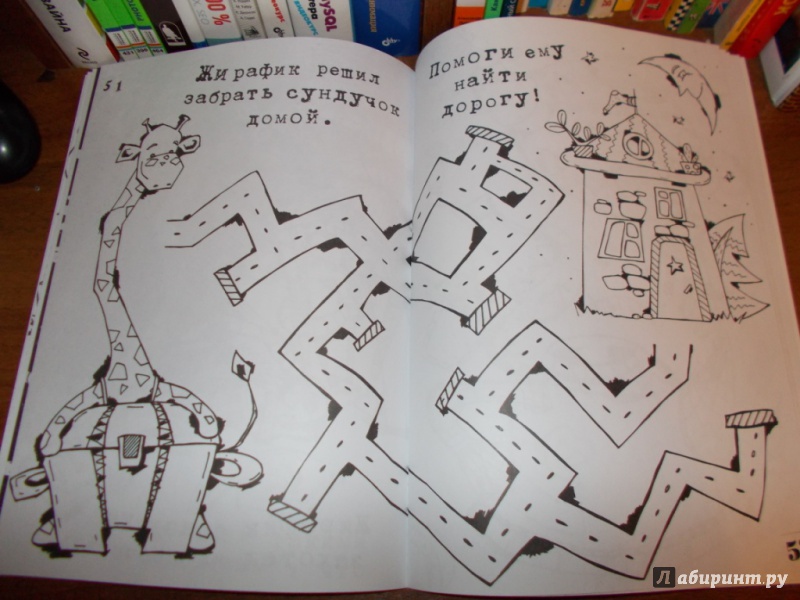 ЗАЙНА
100%
MySQL
51
Жирафик решил
забрать сундучок
домой.
Помоги ему
найти
дорогу!
5
Лабиринт.ру